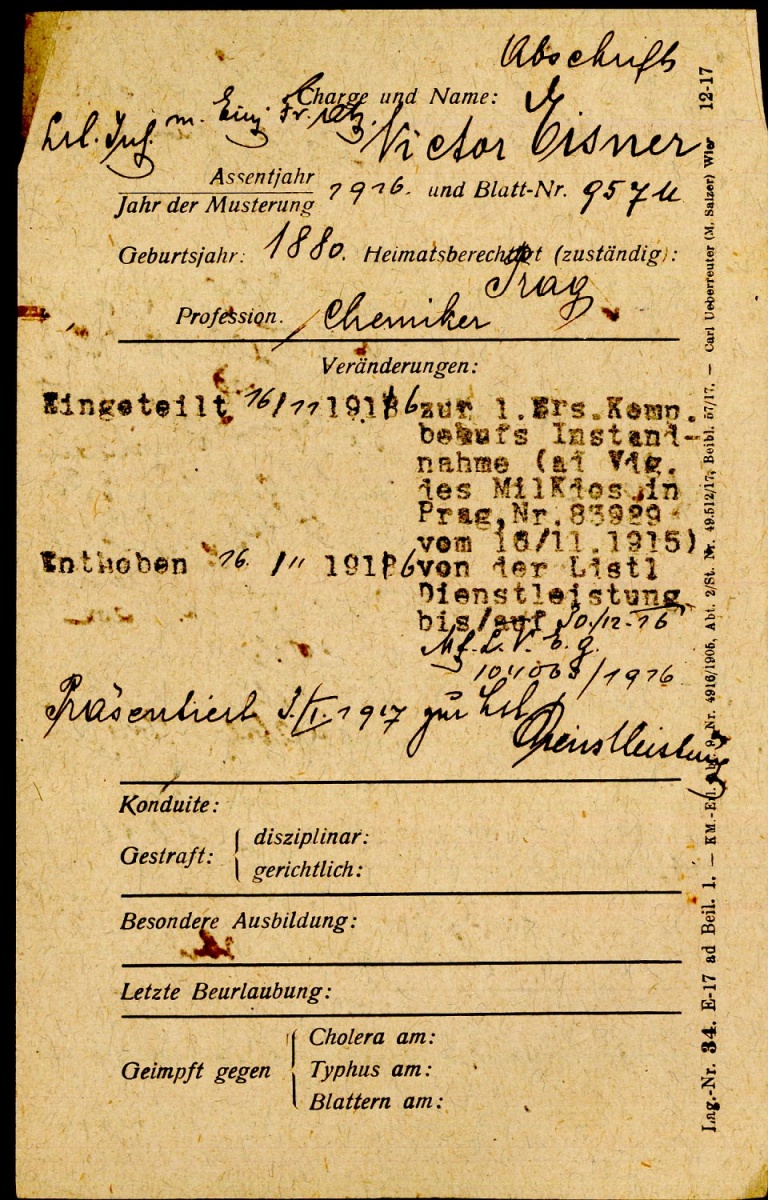 Abschrift
Charge und Name:
Lst. Inf. m. Einj. Fr.
Victor Eisner
Assentjahr
Jahr der Musterung 1916. und Blatt-Nr. 957
Geburtsjahr: 1880. Heimatsberechtigt (zuständig):
Prag
Profession. Chemiker
Veränderungen:
Eingeteilt 16/11 1916 zur 1.Ers.Komp.
behufs Instand-
nahme (ad Vdg.
des MilKdos in
Prag,Nr.83929
vom 16/11.1915)
Enthoben 16./11 1916 von der Lstdl
Dienstleistung
bis/auf 30./12.16
Mf. L. V. E. g.
/1916
Präsentiert 3./I. 1917 zur Lst.
Dienstleistung
Konduite:
Gestraft: disziplinar:
gerichtlich:
Besondere Ausbildung:
Letzte Beurlaubung:
Geimpft gegen
Cholera am:
Typhus am:
Blattern am:
Lag.-Nr. 34. E-17 ad Beil. 1. — KM.-Erl. Abt. 2/St. Nr. 49.512/17, Beibl. 57/17. — Carl Ueberreuter (M. Salzer) Wien 12-17